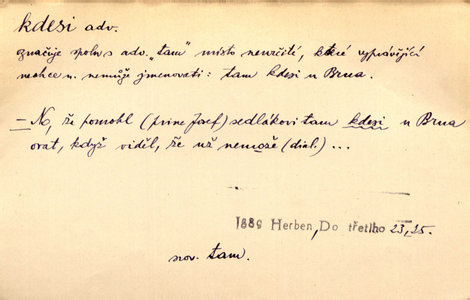 kdesi adv.
značuje spolu s adv. "tam" místo neurčité, které vyprávějící
nechce n. nemůže jmenovati: tam kdesi u Brna.
— No, že pomohl (princ Josef) sedlákovi tam kdesi u Brna
orat, když viděl, že už nemože (dial.) ...
1889 Herben, Do třetího 23, 25.
srov. tam.